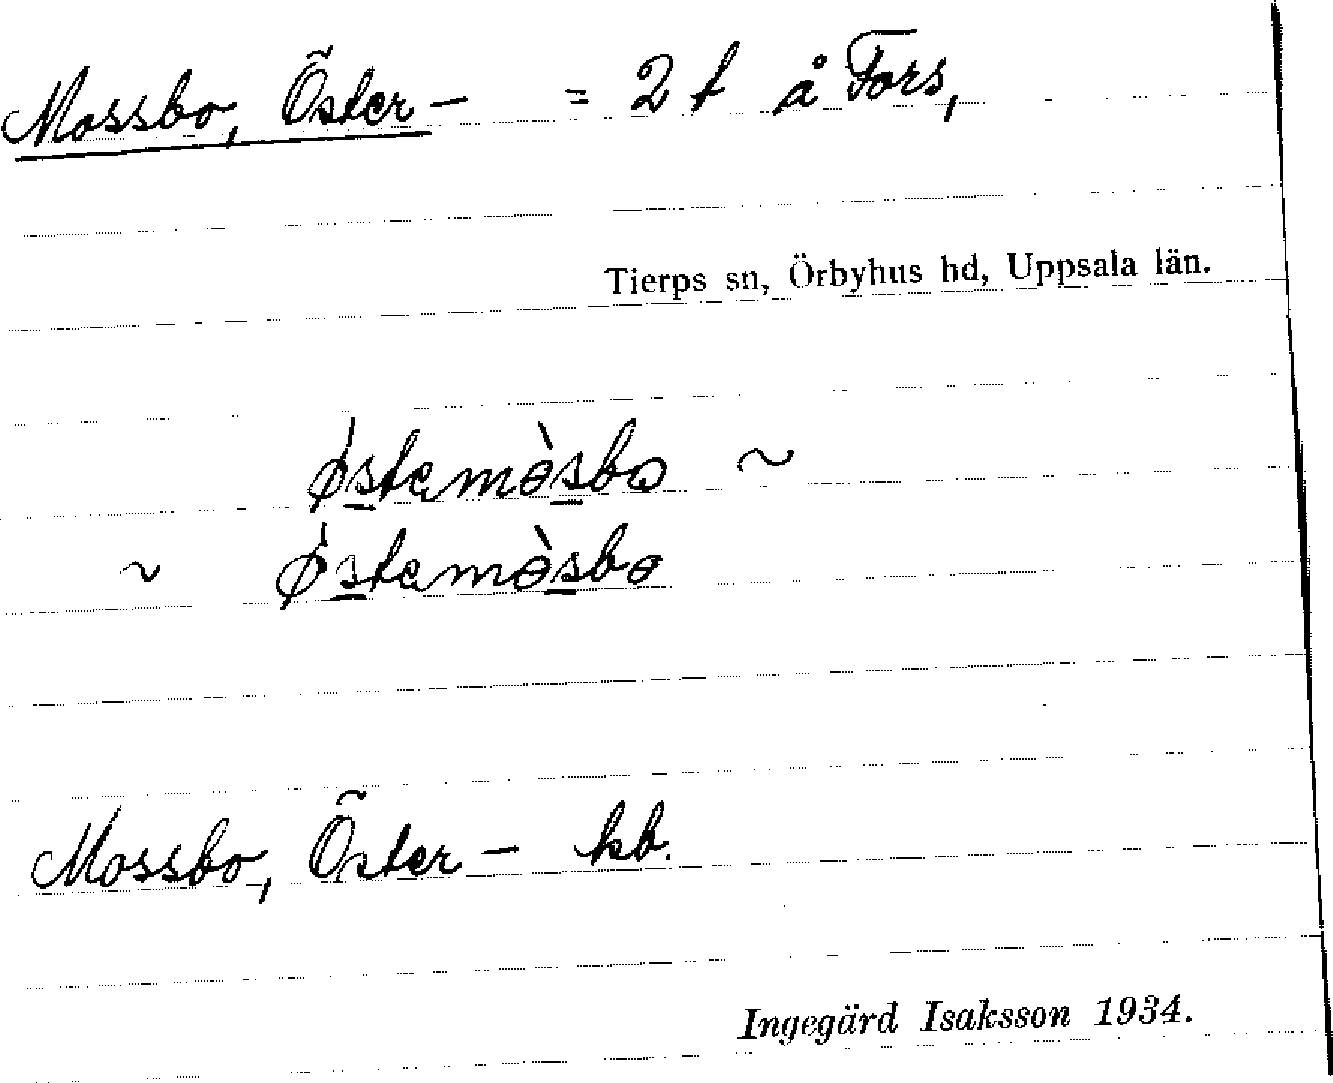 Mossbo, Öster- = 2 t å Fors,
Tierps sn, Örbyhus hd, Uppsala län.
ǿstemɵ̀sbo ~
~ ǿstemɵ̀sbɵ
Mossbo, Öster- kb.
Ingegärd Isaksson 1934.